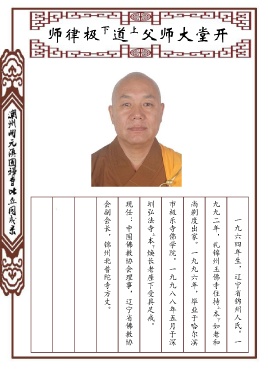 开堂大师父上道下极律师
一九六四年生，辽宁省锦州人氏，一
九九二年，礼锦州玉佛寺住持上本下如老和
尚剃度出家。一九九六年，毕业于哈尔滨
市极乐寺佛学院，一九九八年五月于深
圳弘法寺上本下焕长老座下受具足戒。
现任：中国佛教协会理事，辽宁省佛教协
会副会长，锦州北普陀寺方丈。